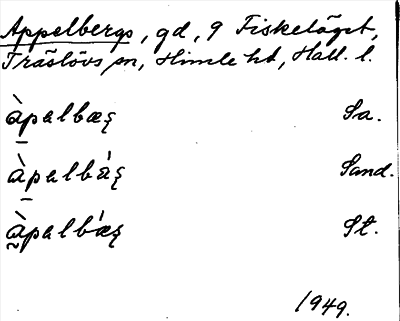 Appelbergs, gd, 9 Fiskeläget,
Träslövs sn, Himle hd, Hall. l.
àpalbæş Sa.
àpalbáş Sand.
àpalbǽş St.
1949.